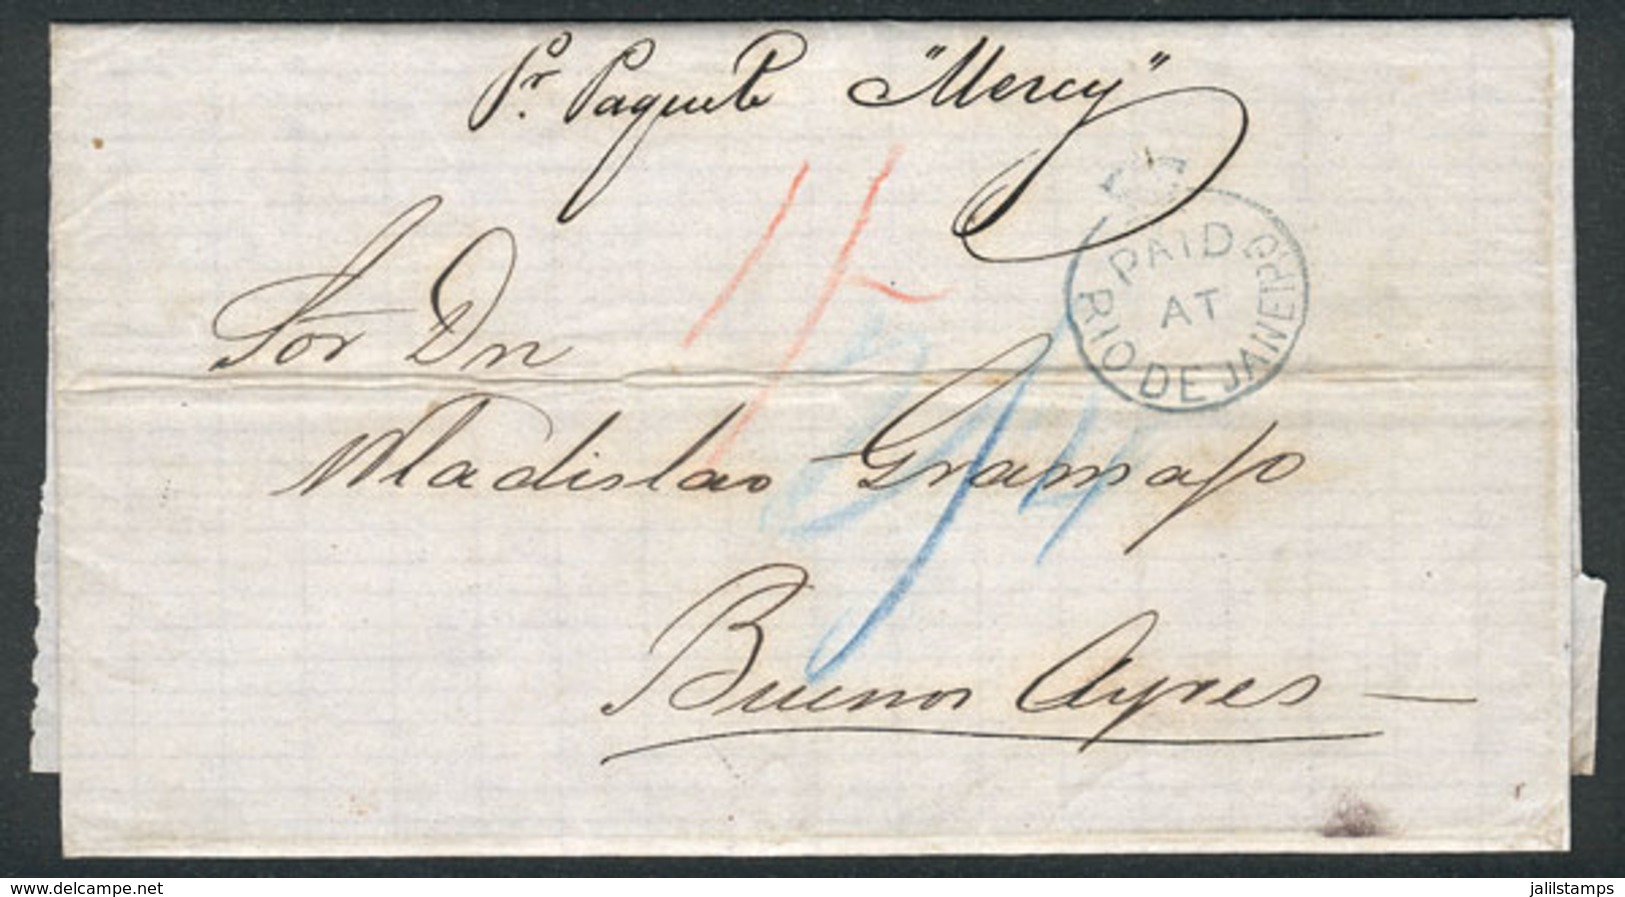 Pr. Paquete "Mersey"
PAID
AT
RIO DE JANEIRO
Sor Dn
Wladislao Gramajo
Buenos Ayres
delcampe.net
jalilstamps